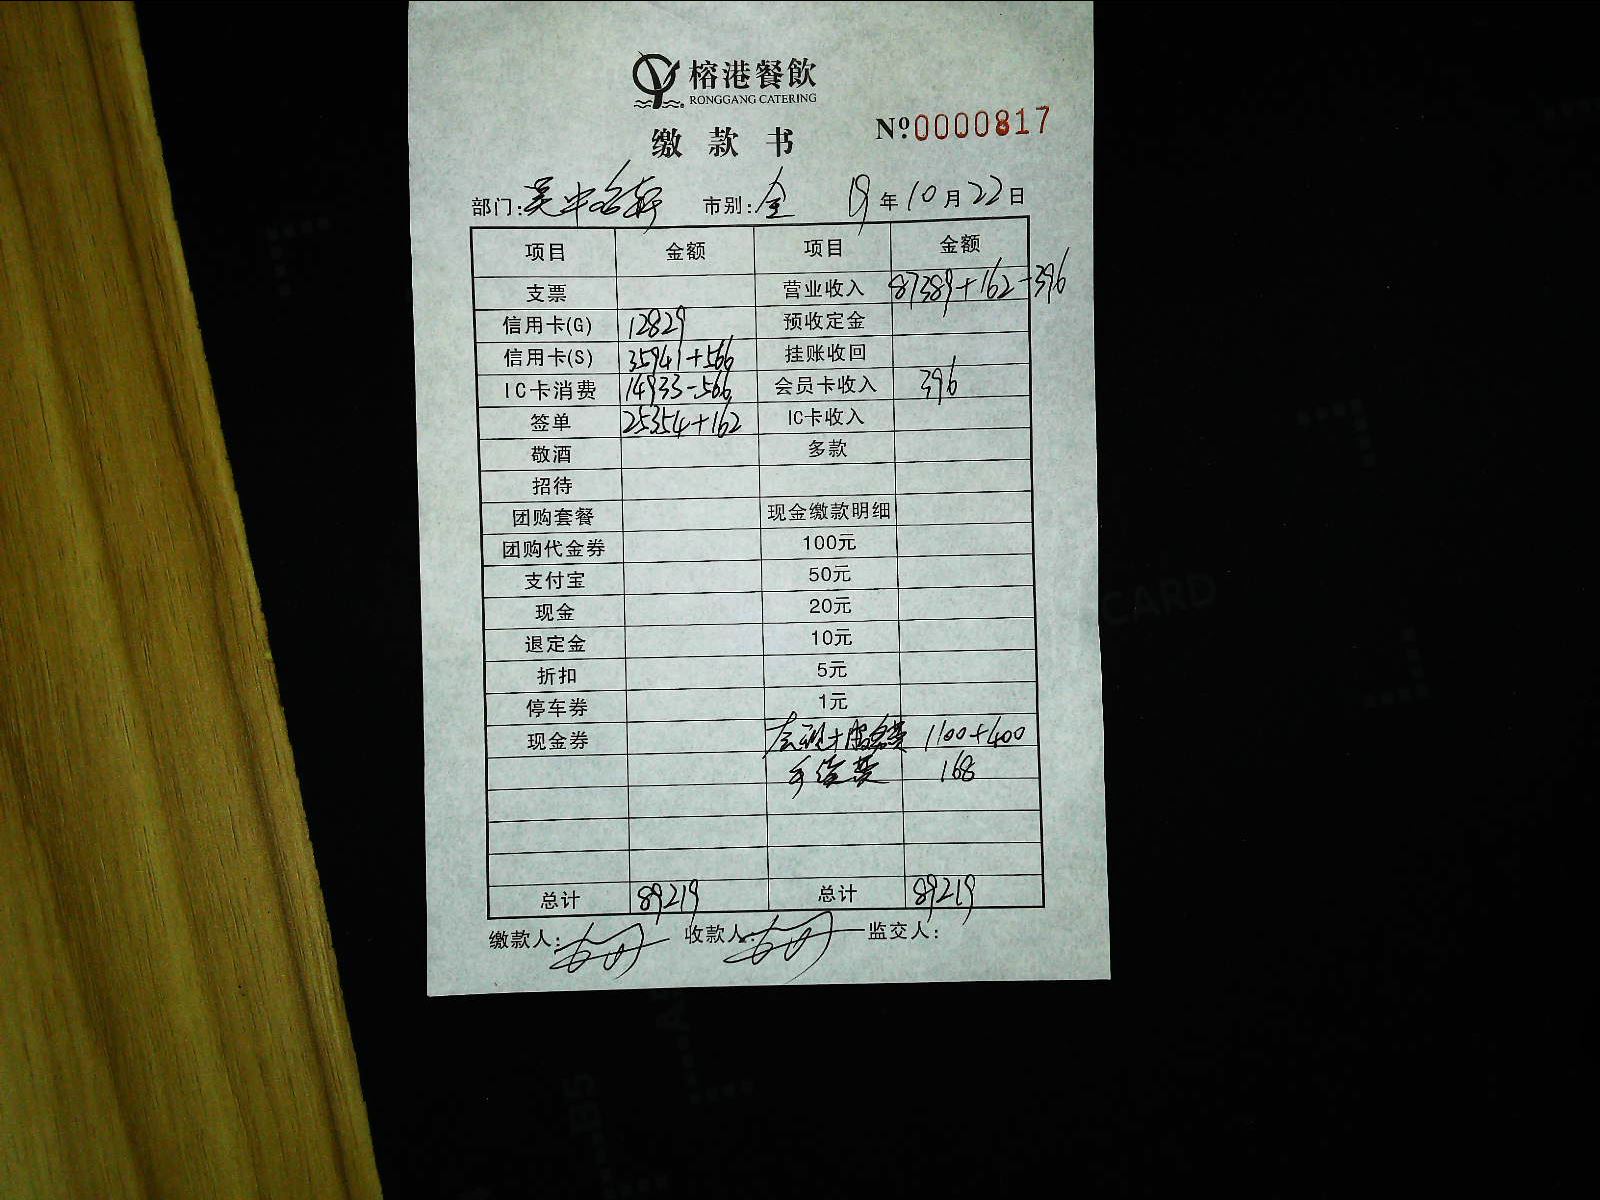 榕港餐飲
RONGGANG CATERING
缴款书 Nº:0000817
部门:吴中名轩 市别:全 19年10月22日
项目 金额 项目 金额
支票 营业收入 87389+162-396
信用卡(G) 12829 预收定金
信用卡(S) 35941+566 挂账收回
IC卡消费 14933-566 会员卡收入 396
签单 25354+162 IC卡收入
敬酒 多款
招待
团购套餐 现金缴款明细
团购代金券 100元
支付宝 50元
现金 20元
退定金 10元
折扣 5元
停车券 1元
现金券 +服务费 1100+400
手续费 168
总计 89219 总计 89219
缴款人: 收款人: 监交人:
CARD
B5